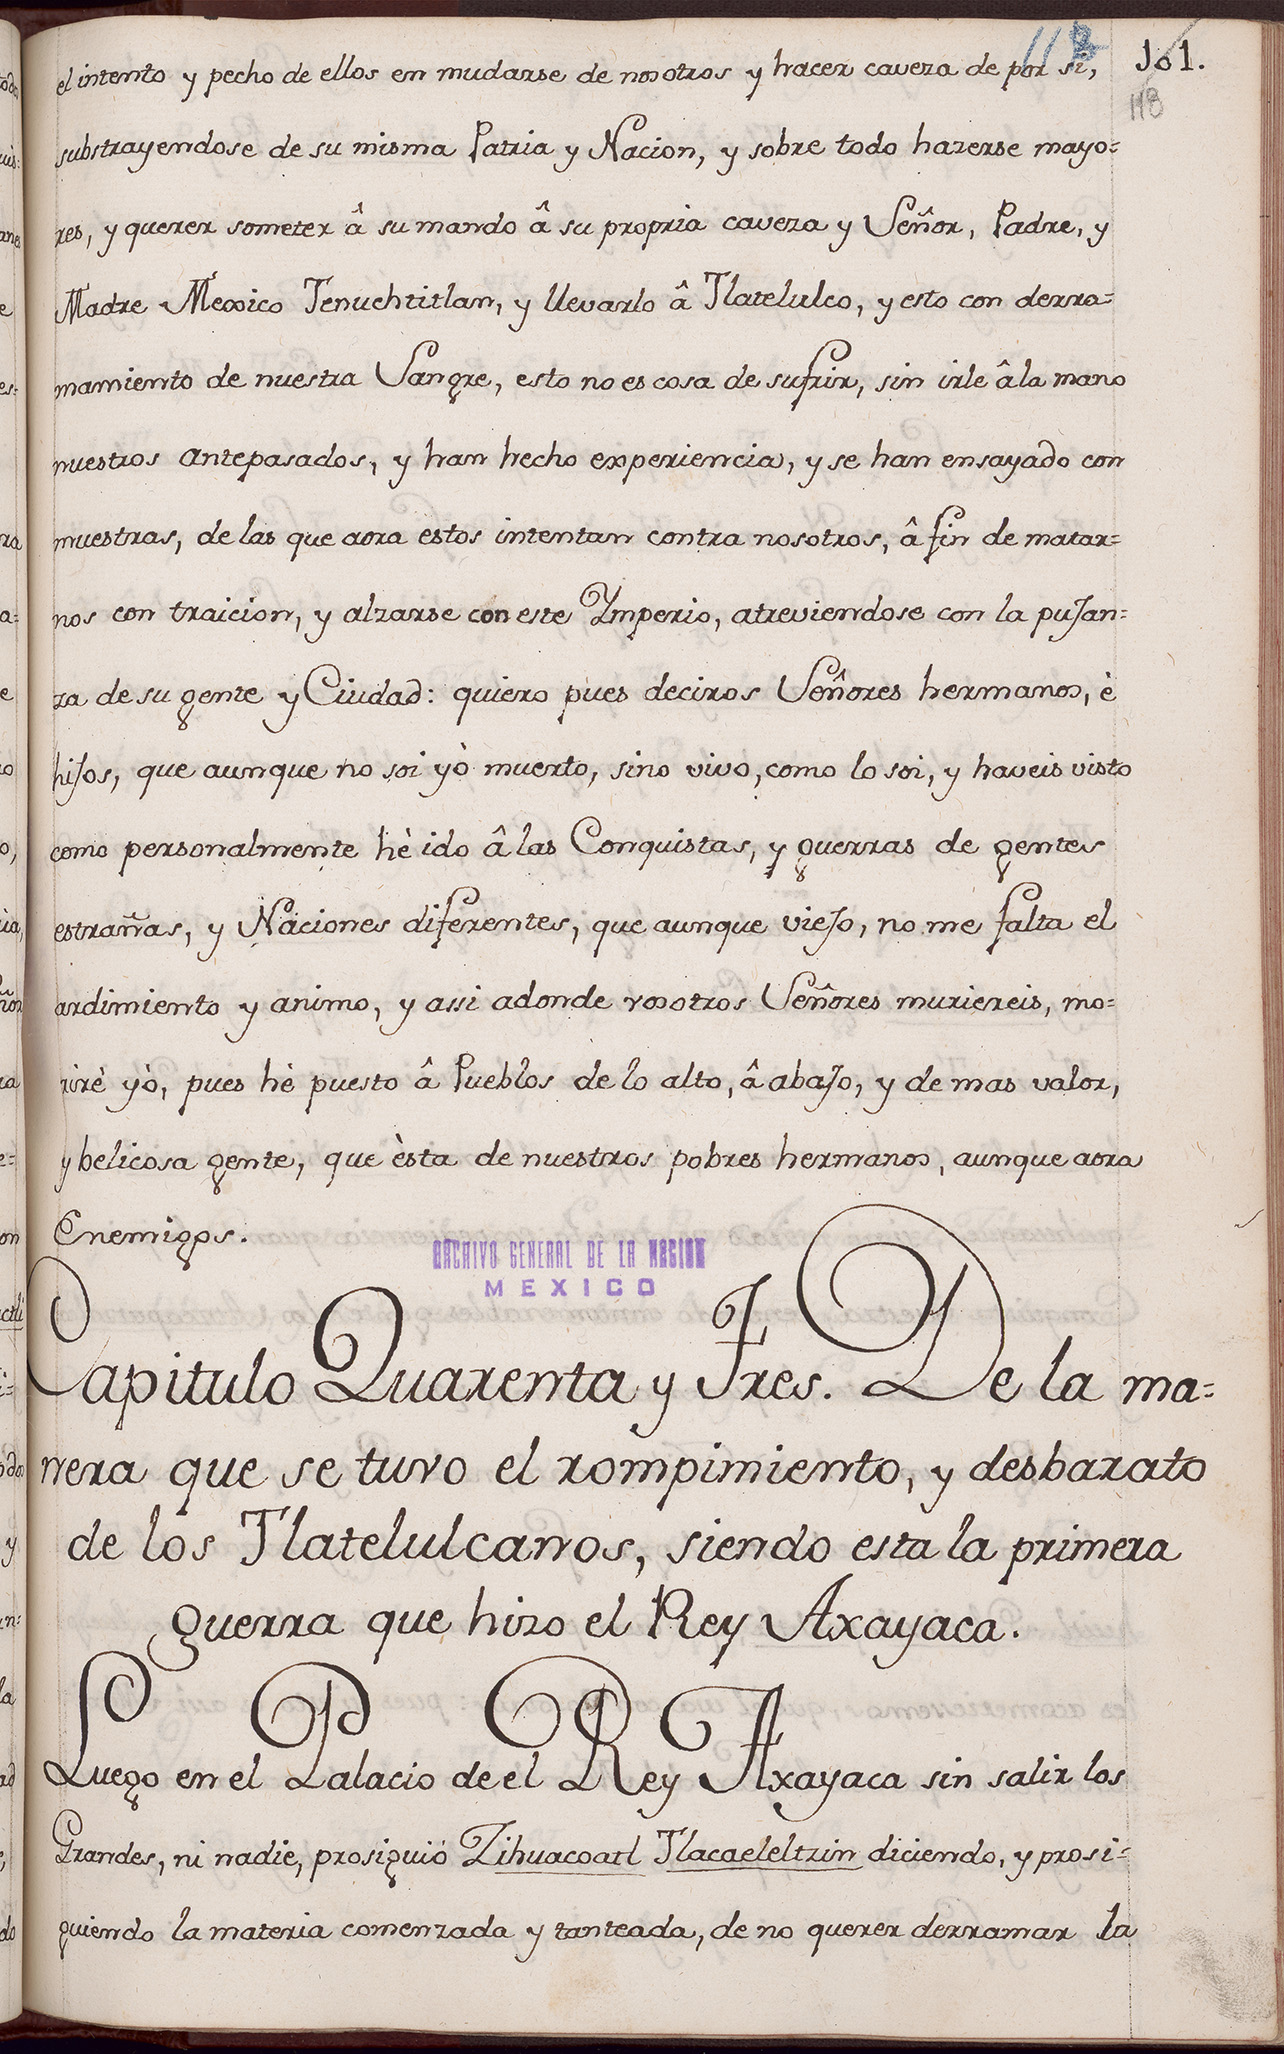 113
101.
118
el intento y pecho de ellos en mudarse de nosotros y hacer caveza de por si,
substrayendose de su misma Patria y Nacion, y sobre todo hazerse mayo=
res, y querer someter â su mando â su propria caveza y Señor, Padre, y
Madre Mexico Tenuchtitlan, y llevarlo â Tlatelulco, y esto con derra=
mamiento de nuestra Sangre, esto no es cosa de sufrir, sin irle â la mano
nuestros antepasados, y han hecho experiencia, y se han ensayado con
muestras, de las que aora estos intentan contra nosotros, â fin de matar=
nos con traicion, y alzarse con este Ymperio, atreviendose con la pujan=
za de su gente y Ciudad: quiero pues deciros Señores hermanos, è
hijos, que aunque no soi yò muerto, sino vivo, como lo soi, y haveis visto
como personalmente hè ido â las Conquistas, y guerras de gentes
estrañas, y Naciones diferentes, que aunque viejo, no me falta el
ardimiento y animo, y assi adonde vosotros Señores muriereis, mo=
rirè yò, pues hè puesto â Pueblos de lo alto, â abajo, y de mas valor,
y belicosa gente, que èsta de nuestros pobres hermanos, aunque aora
Enemigos.
ARCHIVO GENERAL DE LA NACION
MEXICO
Capitulo Quarenta y Tres. De la ma=
nera que se tuvo el rompimiento, y desbarato
de los Tlatelulcanos, siendo esta la primera
guerra que hizo el Rey Axayaca.
Luego en el Palacio de el Rey Axayaca sin salir los
Grandes, ni nadie, prosiguió Zihuacoatl Tlacaeleltzin diciendo, y prosi=
guiendo la materia comenzada y tanteada, de no querer derramar la